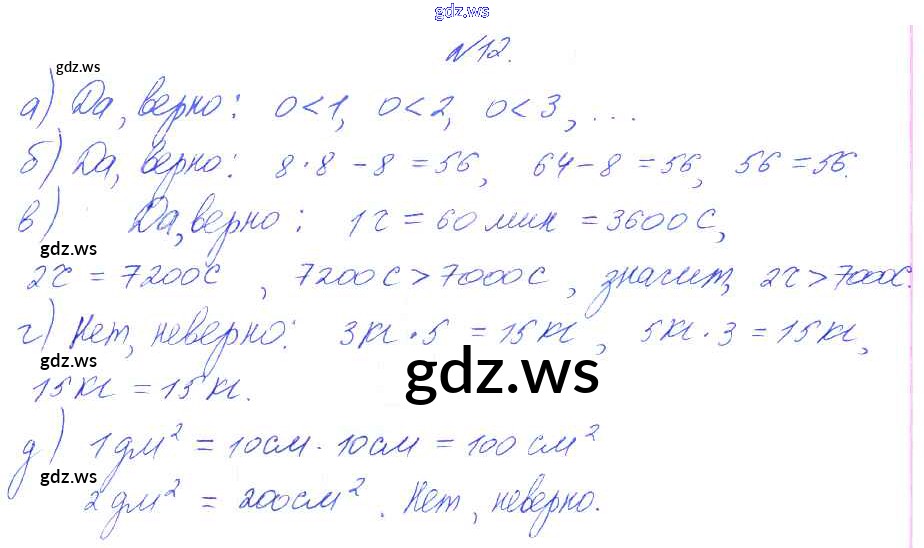 gdz.ws
№12.
gdz.ws
а) Да, верно: 0<1, 0<2, 0<3, ...
б) Да, верно: 8·8-8=56, 64-8=56, 56=56.
в) Да, верно: 1ч=60мин=3600С,
gdz.ws
2ч=7200С, 7200С>7000С, значит, 2ч>7000С.
г) Нет, неверно: 3кг·5=15кг, 5кг·3=15кг,
gdz.ws
15кг=15кг.
gdz.ws
д) 1дм²=10см·10см=100см²
gdz.ws
2дм²=200см². Нет, неверно.